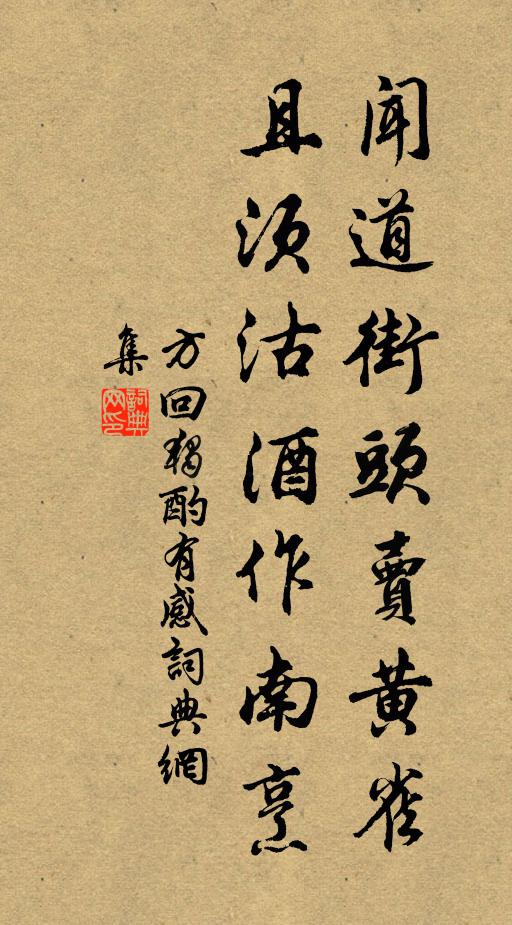 聞道街頭賣黃雀
且須沽酒作南烹
方回獨酌有感詞典網
集
詞典網印